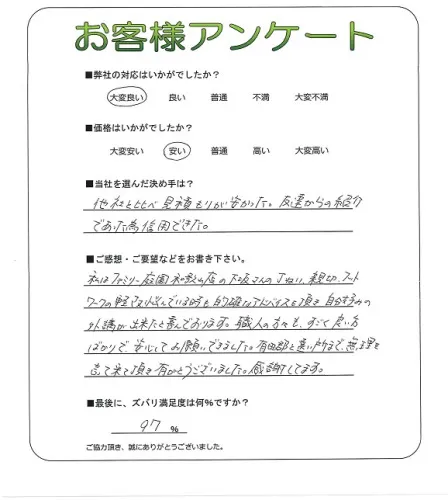 お客様アンケート
■弊社の対応はいかがでしたか？
大変良い 良い 普通 不満 大変不満
■価格はいかがでしたか？
大変安い 安い 普通 高い 大変高い
■当社を選んだ決め手は？
他社と比べ見積もりが安かった。友達からの紹介
であった為信用できた。
■ご感想・ご要望などをお書き下さい。
私はファミリー庭園和歌山店の下坂さんのていねい、親切、フット
ワークの軽さ、悩んでいる時も的確なアドバイスを頂き自分好みの
外構が出来たと喜んでおります。職人の方々も、すごく良い方
ばかりで安心してお願いできました。有田郡と遠い所まで、無理を
言って来て頂き有がとうございました。感謝してます。
■最後に、ズバリ満足度は何％ですか？
97 ％
ご協力頂き、誠にありがとうございました。